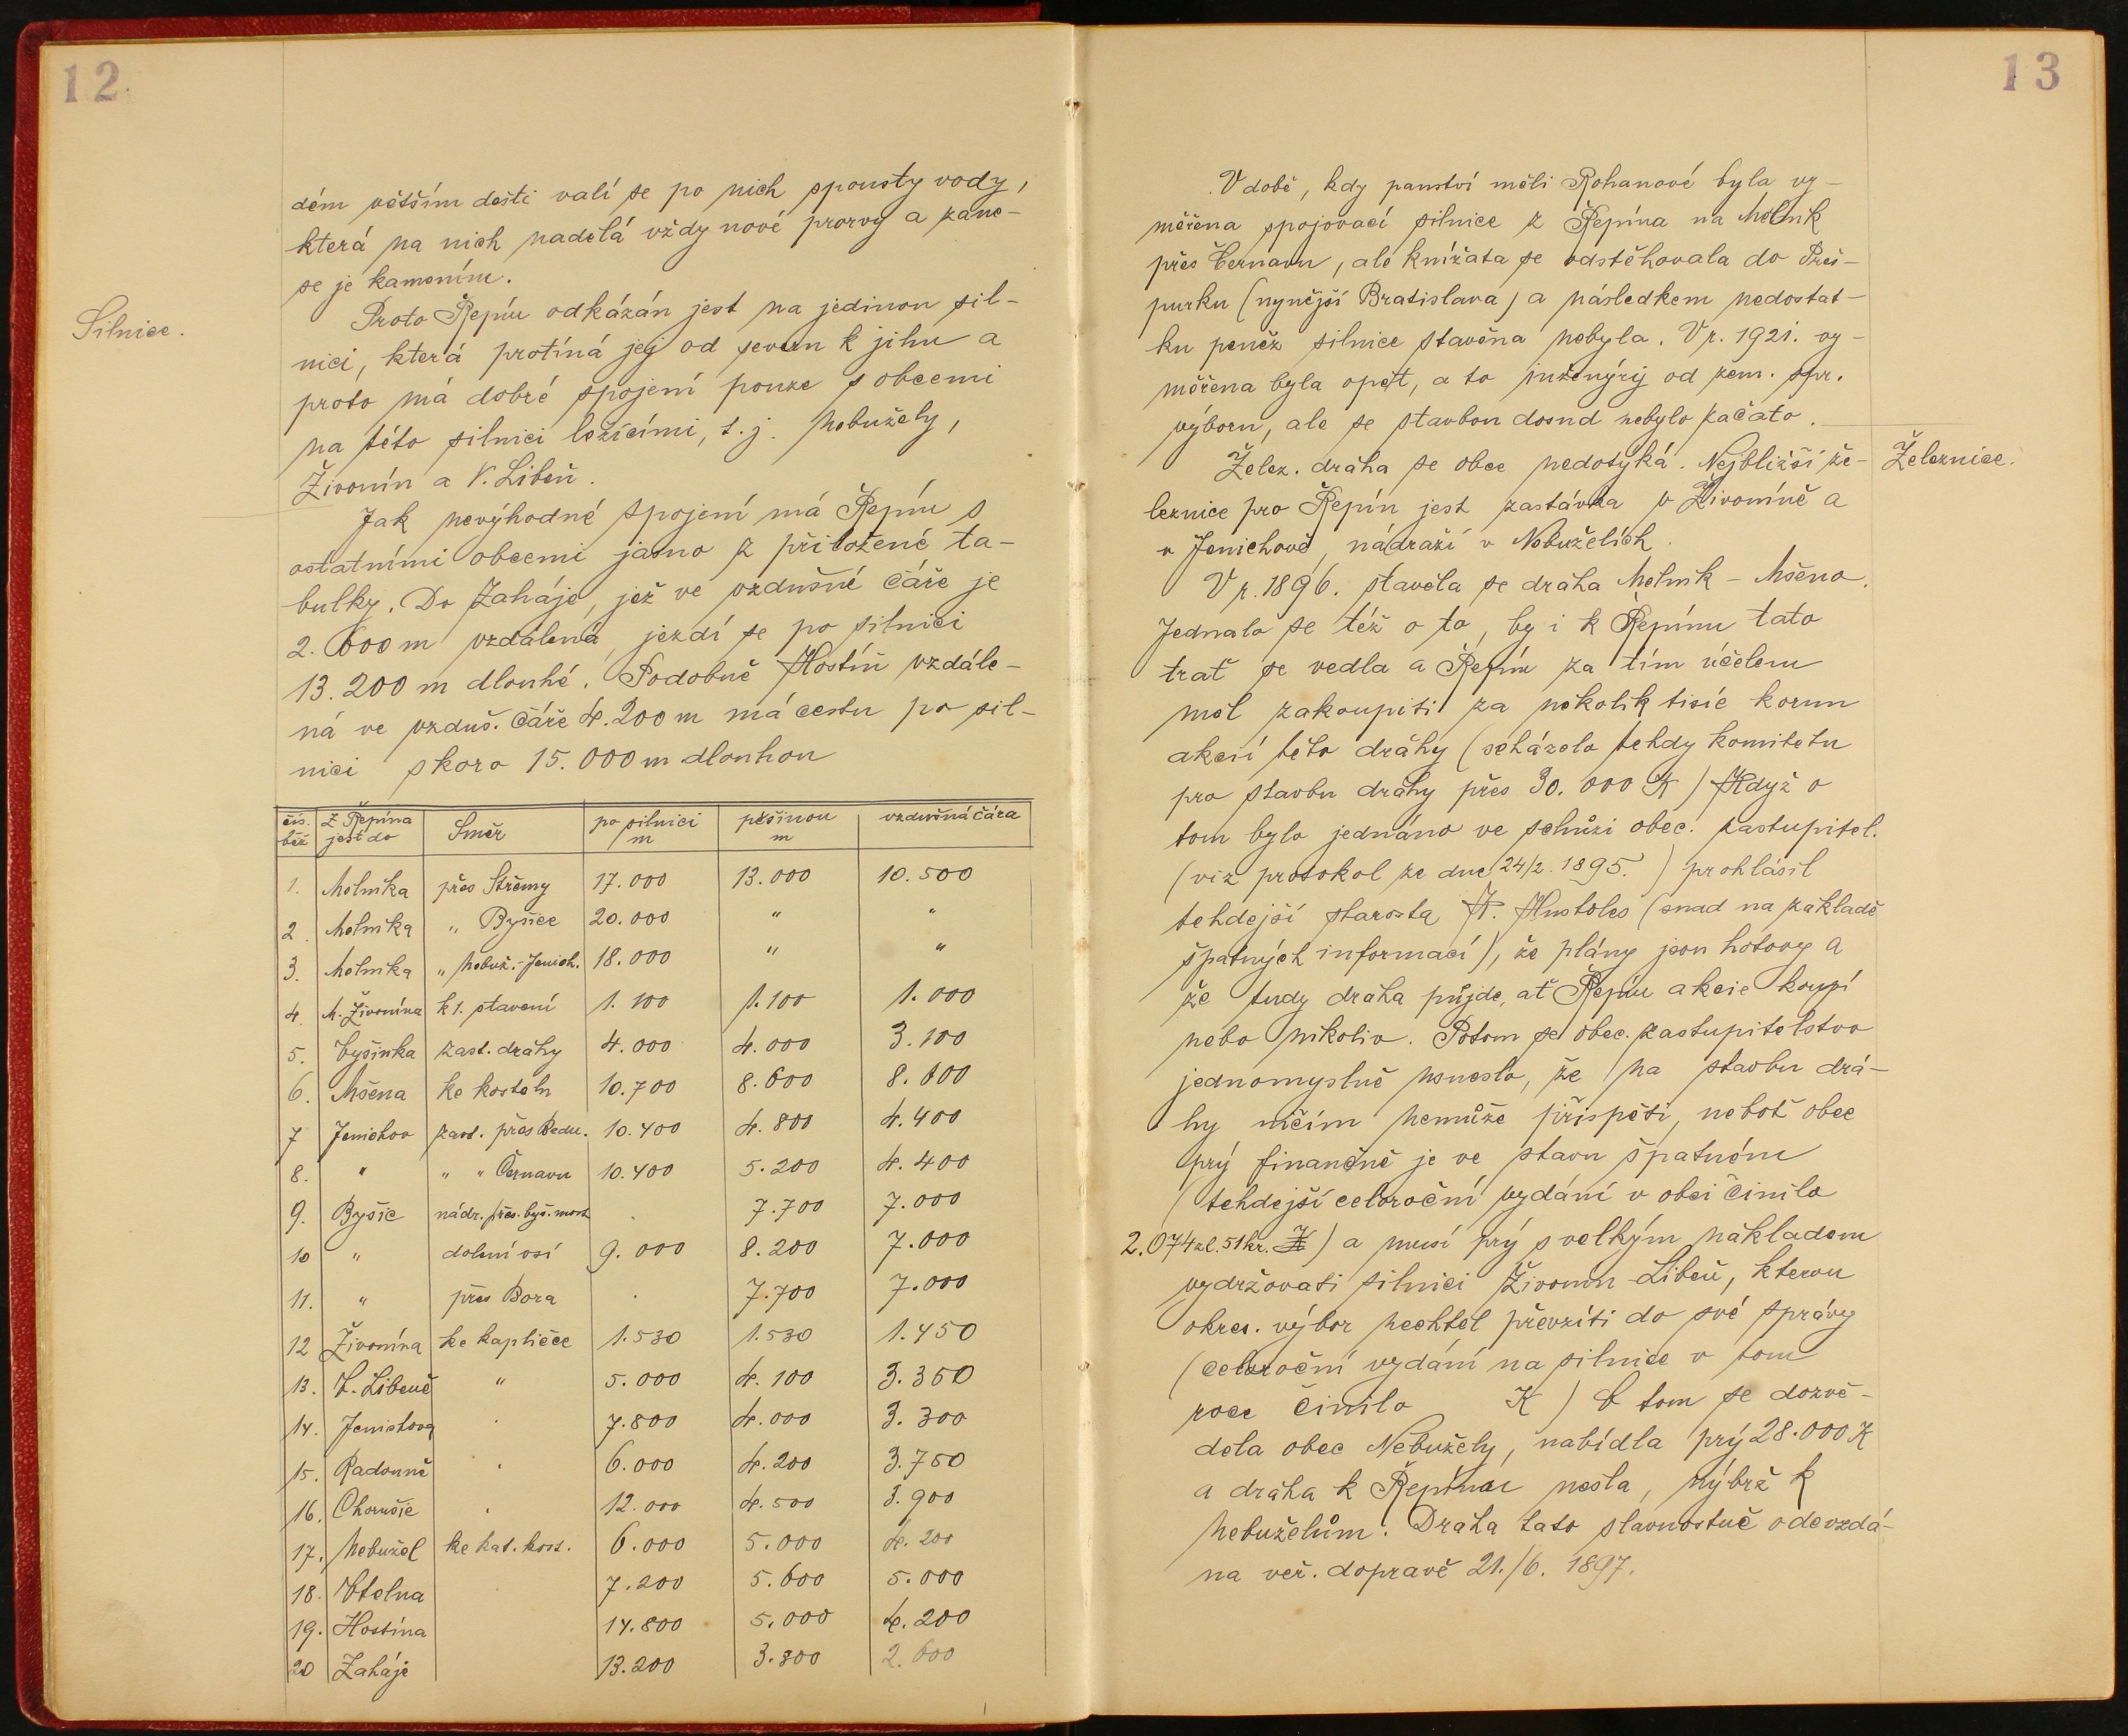 12.
dém větším dešti valí se po nich spousty vody,
která na nich nadělá vždy nové prorvy a zane-
se je kamením.
Silnice.
Proto Řepín odkázán jest na jedinou sil-
nici, která protíná jej od severu k jihu a
proto má dobré spojení pouze s obcemi
na této silnici ležícími, t.j. Nebužely,
Živonín a V. Libeň.
Jak nevýhodné spojení má Řepín s
ostatními obcemi jasno z přiložené ta-
bulky. Do Zaháje, jež ve vzdušné čáře je
2.600 m vzdálená, jezdí se po silnici
13.200 m dlouhé. Podobně Hostín vzdále-
ná ve vzduš. čáře 4.200 m má cestu po sil-
nici skoro 15.000 m dlouhou
čís. běž | Z Řepína jest do | Směr | po silnici m | pěšinou m | vzdušná čára
1. Mělníka přes Střemy 17.000 13.000 10.500
2. Mělníka " Byšice 20.000 " "
3. Mělníka " Nebuž.-Jenich. 18.000 " "
4. M. Živonína k 1. stavení 1.100 1.100 1.000
5. Vyšinka zast. dráhy 4.000 4.000 3.100
6. Mšena ke kostelu 10.700 8.600 8.600
7 Jenichov zast. přes Bedn. 10.400 4.800 4.400
8. " " " Černavu 10.400 5.200 4.400
9. Byšic nádr. přes. byš. most . 7.700 7.000
10 " dolení vsí 9.000 8.200 7.000
11. " přes Bora . 7.700 7.000
12 Živonína ke kapličce 1.530 1.530 1.450
13. V. Libeně " 5.000 4.100 3.350
14. Jenichova . 7.800 4.000 3.300
15. Radouně . 6.000 4.200 3.750
16. Chorušic . 12.000 4.500 3.900
17. Nebužel ke kat. kost. 6.000 5.000 4.200
18. Vtelna 7.200 5.600 5.000
19. Hostína 14.800 5.000 4.200
20 Zaháje 13.200 3.800 2.600
13
V době, kdy panství měli Rohanové byla vy-
měřena spojovací silnice z Řepína na Mělník
přes Černavu, ale knížata se odstěhovala do Preš-
purku (nynější Bratislava) a následkem nedostat-
ku peněz silnice stavěna nebyla. V r. 1921. vy-
měřena byla opět, a to inženýrij od zem. spr.
výboru, ale se stavbou dosud nebylo začato.
Železnice.
Želez. dráha se obce nedotyká. Nejbližší že-
leznice pro Řepín jest zastávka v Živoníně a
v Jenichově, nádraží v Nebuželích.
V r. 1896. stavěla se dráha Mělník - Mšeno.
Jednalo se též o to, by i k Řepínu tato
trať se vedla a Řepín za tím účelem
měl zakoupiti za několik tisíc korun
akcií této dráhy (scházelo tehdy komitétu
pro stavbu dráhy přes 30.000 K) Když o
tom bylo jednáno ve schůzi obec. zastupitel.
(viz protokol ze dne 24/2. 1895.) prohlásil
tehdejší starosta Hustoles (snad na zakladě
špatných informací), že plány jsou hotovy a
že tudy dráha půjde, ať Řepín akcie koupí
nebo nikoliv. Potom se obec. zastupitelstvo
jednomyslně usneslo, že na stavbu drá-
hy ničím nemůže přispěti, neboť obec
prý finančně je ve stavu špatném
(tehdejší celoroční vydání v obci činilo
2.074 zl. 51 kr. K) a musí prý s velkým nákladem
vydržovati silnici Živonín-Libeň, kterou
okres. výbor nechtěl převzíti do své správy
(celoroční vydání na silnice v tom
roce činilo K) O tom se dozvě-
děla obec Nebužely, nabídla prý 28.000 K
a dráha k Řepínu nešla, nýbrž k
Nebuželům. Dráha tato slavnostně odevzdá-
na veř. dopravě 21./6. 1897.